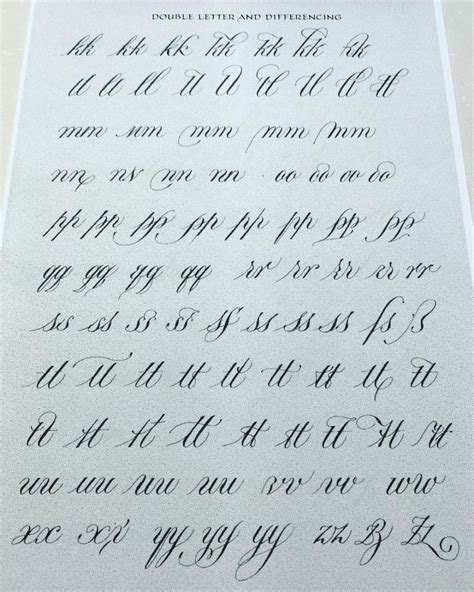 DOUBLE LETTER AND DIFFERENCING
kk kk kk kk kk kk kk
ll ll ll ll ll ll ll ll ll
mm mm mm mm mm
nn nn nn nn oo oo oo oo
pp pp pp pp pp pp pp pp
qq qq qq qq rr rr rr rr rr
ss ss ss ss ss ss ss ss ß
tt tt tt tt tt tt tt tt tt
tt tt tt tt tt tt tt tt tt
uu uu uu uu vv vv ww
xx xx yy yy yy zz zz zz